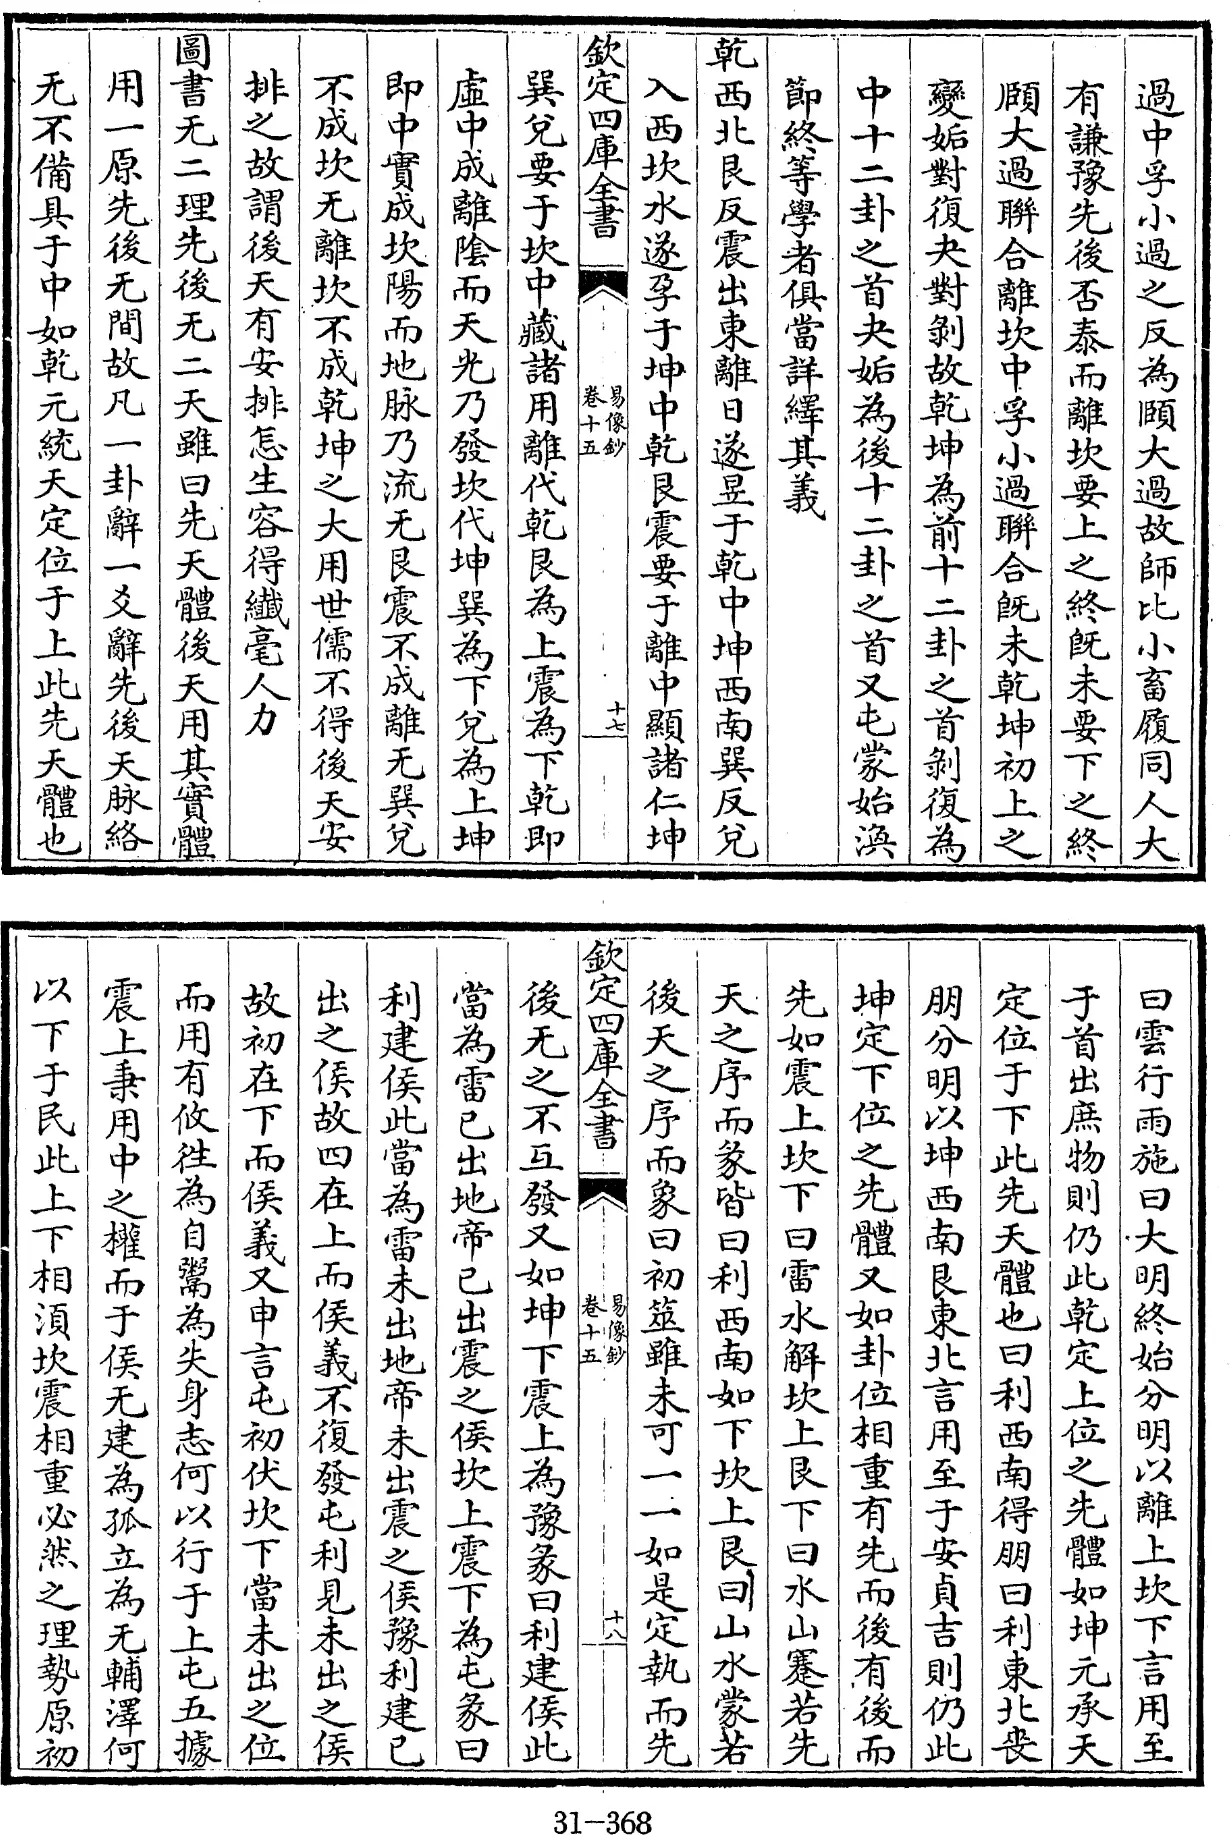 過中孚小過之反為頤大過故師比小畜履同人大
有謙豫先後否泰而離坎要上之終旣未要下之終
頤大過聯合離坎中孚小過聯合旣未乾坤初上之
變姤對復夬對剝故乾坤為前十二卦之首剝復為
中十二卦之首夬姤為後十二卦之首又屯蒙始渙
節終等學者俱當詳繹其義
乾西北艮反震出東離日遂昱于乾中坤西南巽反兌
入西坎水遂孕于坤中乾艮震要于離中顯諸仁坤
欽定四庫全書
易像鈔
卷十五
十七
巽兌要于坎中藏諸用離代乾艮為上震為下乾即
虛中成離陰而天光乃發坎代坤巽為下兌為上坤
即中實成坎陽而地脉乃流无艮震不成離无巽兌
不成坎无離坎不成乾坤之大用世儒不得後天安
排之故謂後天有安排怎生容得纖毫人力
圖書无二理先後无二天雖曰先天體後天用其實體
用一原先後无間故凡一卦辭一爻辭先後天脉絡
无不備具于中如乾元統天定位于上此先天體也
曰雲行雨施曰大明終始分明以離上坎下言用至
于首出庶物則仍此乾定上位之先體如坤元承天
定位于下此先天體也曰利西南得朋曰利東北喪
朋分明以坤西南艮東北言用至于安貞吉則仍此
坤定下位之先體又如卦位相重有先而後有後而
先如震上坎下曰雷水解坎上艮下曰水山蹇若先
天之序而彖皆曰利西南如下坎上艮曰山水蒙若
後天之序而彖曰初筮雖未可一一如是定執而先
欽定四庫全書
易像鈔
卷十五
十八
後无之不互發又如坤下震上為豫彖曰利建侯此
當為雷已出地帝已出震之侯坎上震下為屯彖曰
利建侯此當為雷未出地帝未出震之侯豫利建已
出之侯故四在上而侯義不復發屯利見未出之侯
故初在下而侯義又申言屯初伏坎下當未出之位
而用有攸往為自鬻為失身志何以行于上屯五據
震上秉用中之權而于侯无建為孤立為无輔澤何
以下于民此上下相須坎震相重必然之理勢原初
31-368